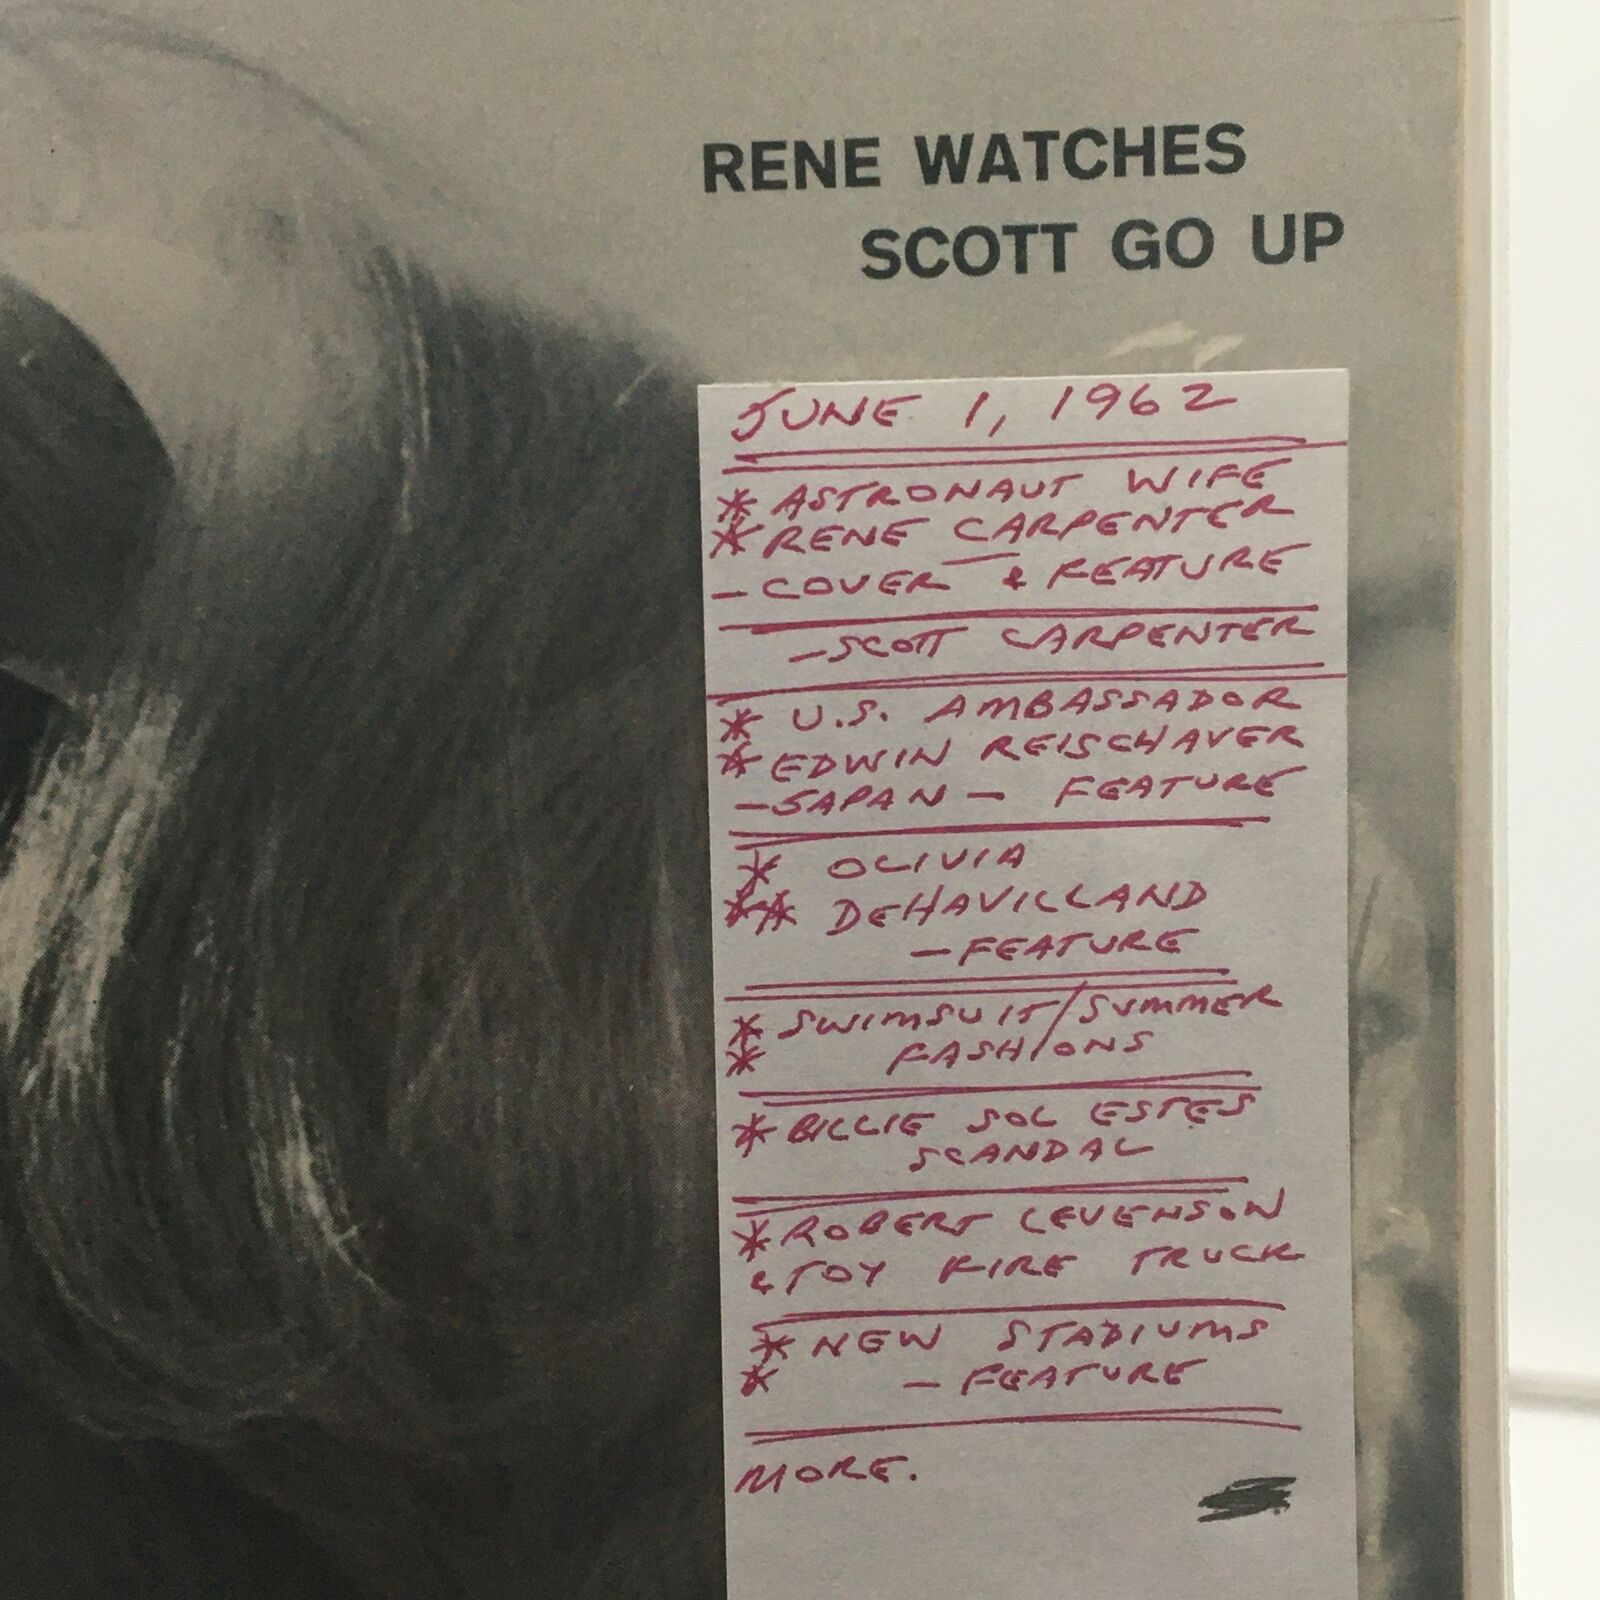 RENE WATCHES
SCOTT GO UP
JUNE 1, 1962
* ASTRONAUT WIFE
* RENE CARPENTER
- COVER & FEATURE
- SCOTT CARPENTER
* U.S. AMBASSADOR
* EDWIN REISCHAUER
- JAPAN - FEATURE
* OLIVIA
** DEHAVILLAND
- FEATURE
* SWIMSUIT/SUMMER
* FASHIONS
* BILLIE SOL ESTES
SCANDAL
* ROBERT LEVENSON
& TOY FIRE TRUCK
* NEW STADIUMS
* - FEATURE
MORE.